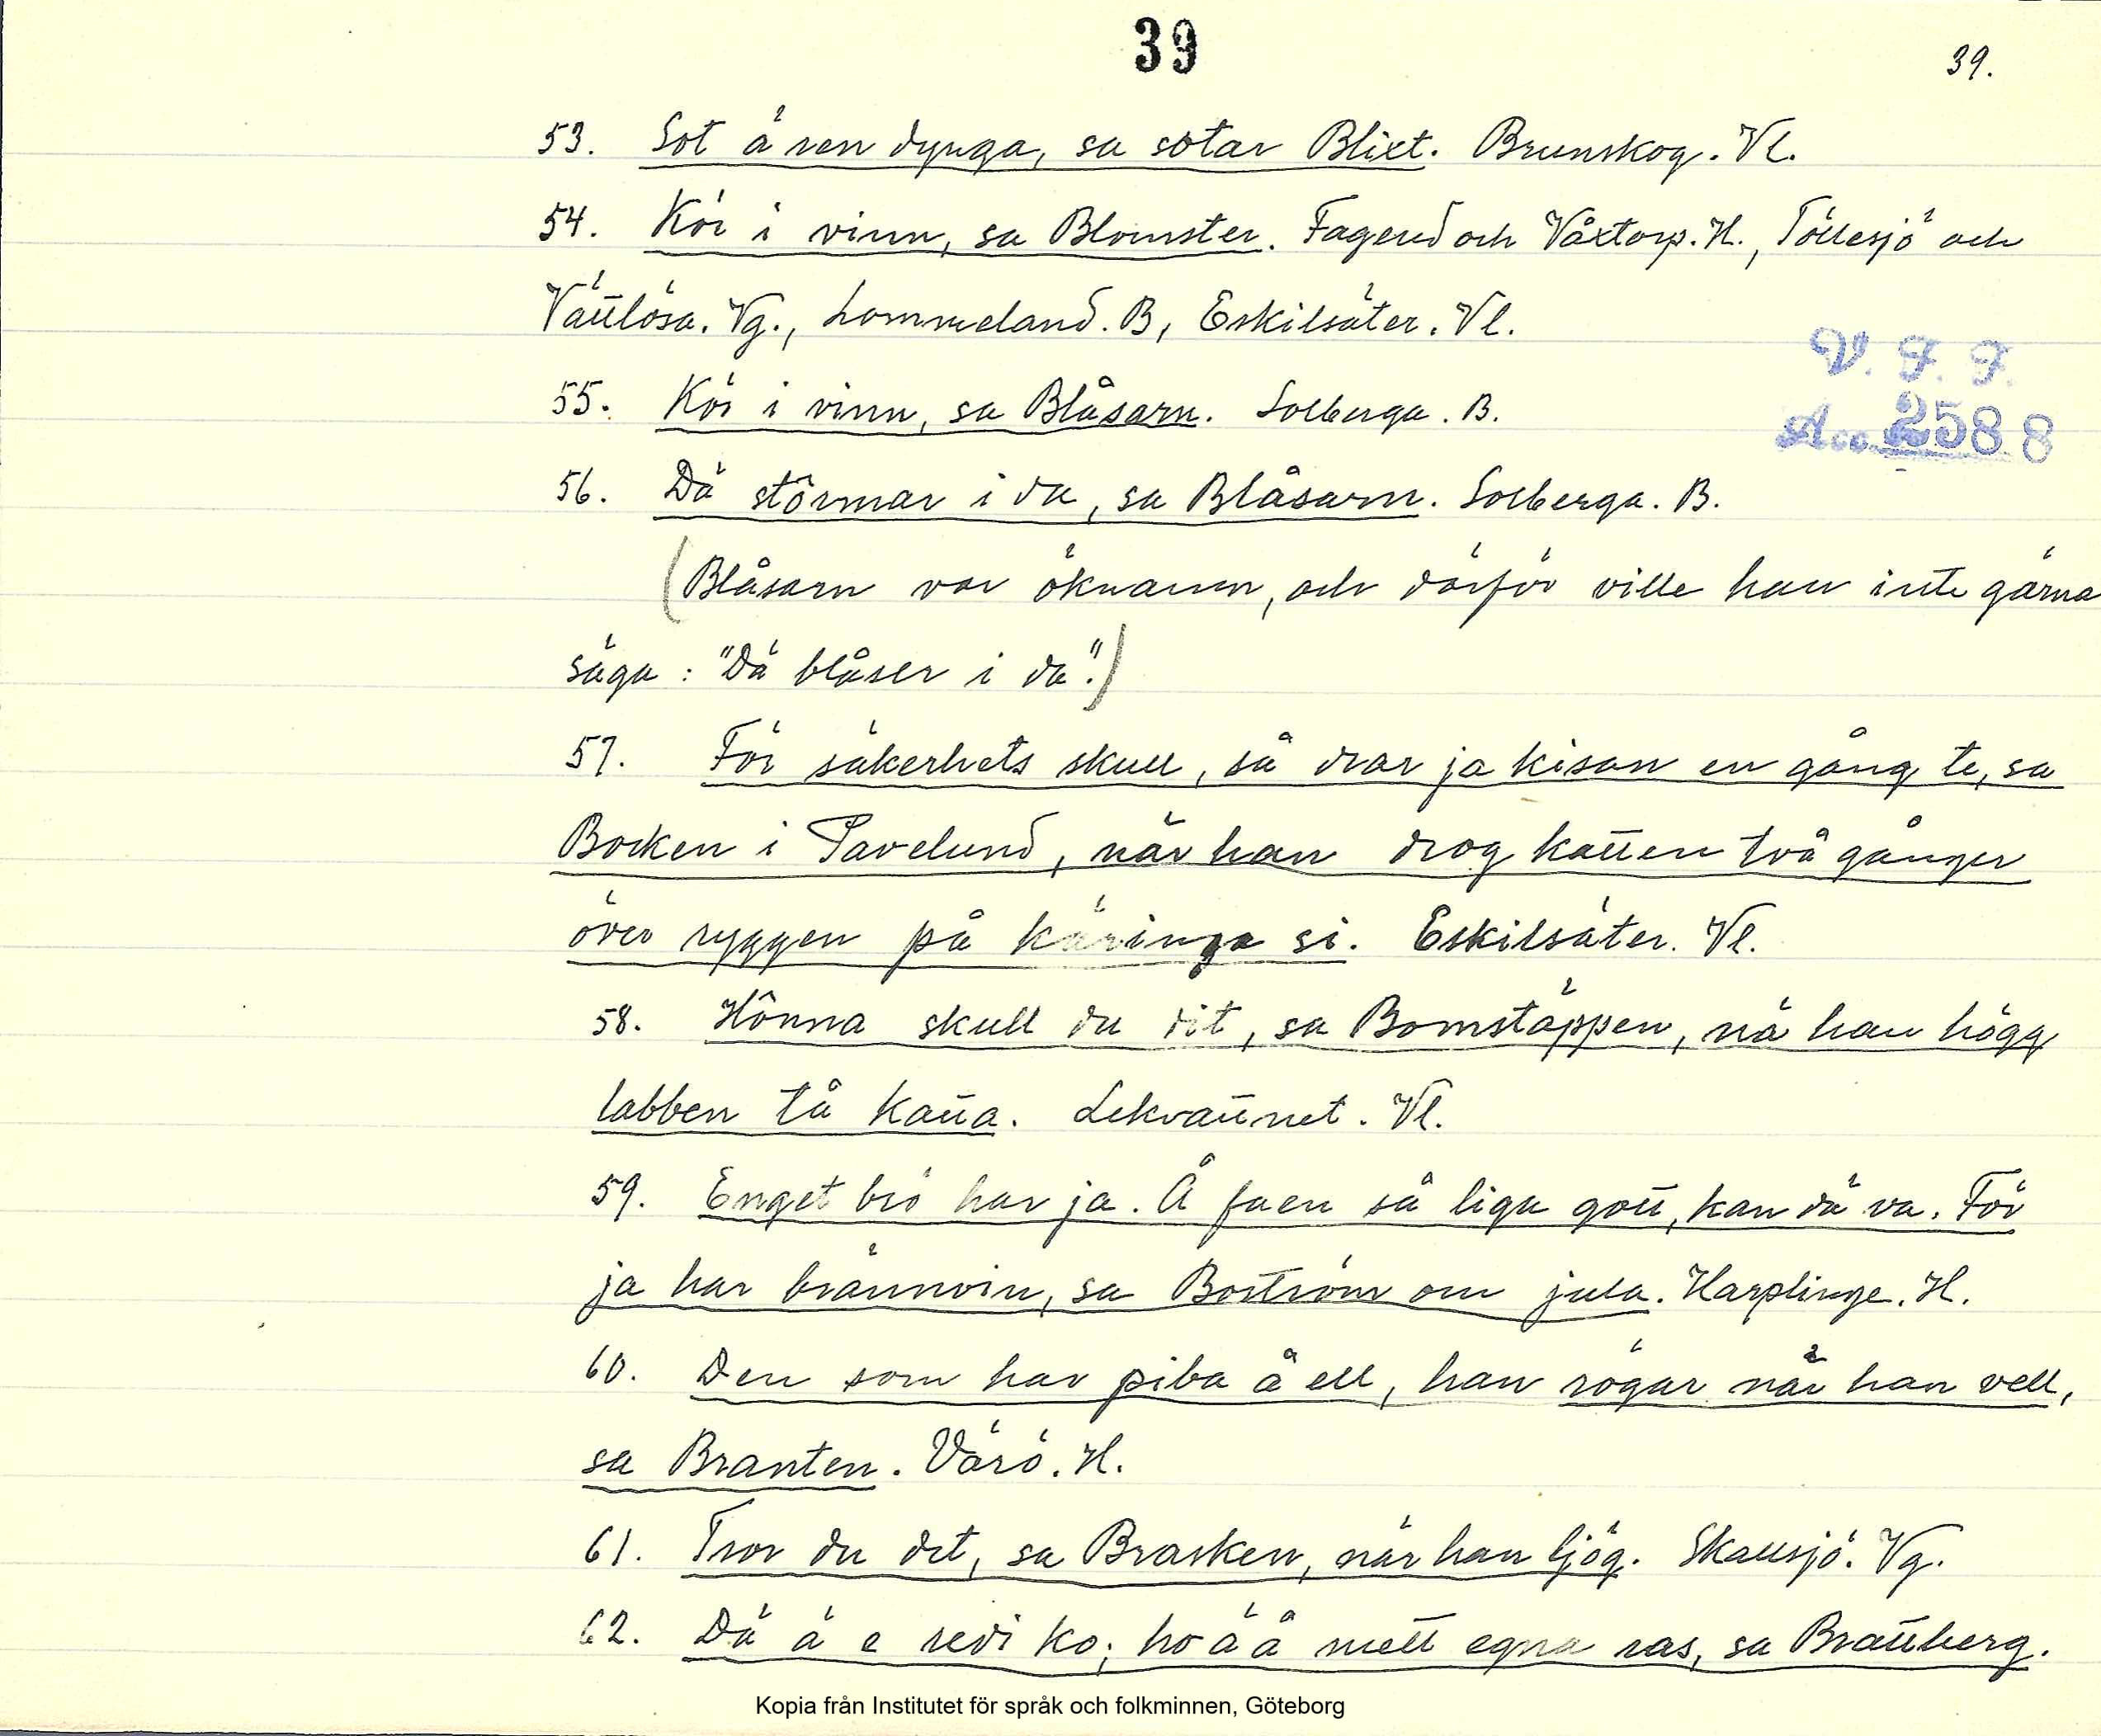 39
39.
53. Sot ä ren dynga, sa sotar Blixt. Brunskog. Vl.
54. Kör i vinn, sa Blomster. Fagered och Våxtorp. H., Töllesjö och
Vättlösa. Vg., Lommeland. B, Eskilsäter. Vl.
V. F. F.
55. Kör i vinn, sa Blåsarn. Solberga. B.
Acc. 2588
56. Dä stôrmar i da, sa Blåsarn. Solberga. B.
(Blåsarn var öknamn, och därför ville han inte gärna
säga: "Dä blåser i da".)
57. För säkerhets skull, så drar ja kisan en gång te, sa
Bocken i Pavelund, när han drog katten två gånger
över ryggen på käringa si. Eskilsäter. Vl.
58. Hônna skull du dit, sa Bomstäppen, nä han högg
labben tå katta. Lekvattnet. Vl.
59. Enget brö har ja. Å faen så liga gott, kan dä va. För
ja har brännvin, sa Boström om jula. Harplinge. H.
60. Den som har piba å ell, han rögar när han vell,
sa Branten. Värö. H.
61. Tror du det, sa Brasken, när han ljög. Skallsjö. Vg.
62. Dä ä e redi ko; ho ä å mett egna ras, sa Brattberg.
Kopia från Institutet för språk och folkminnen, Göteborg